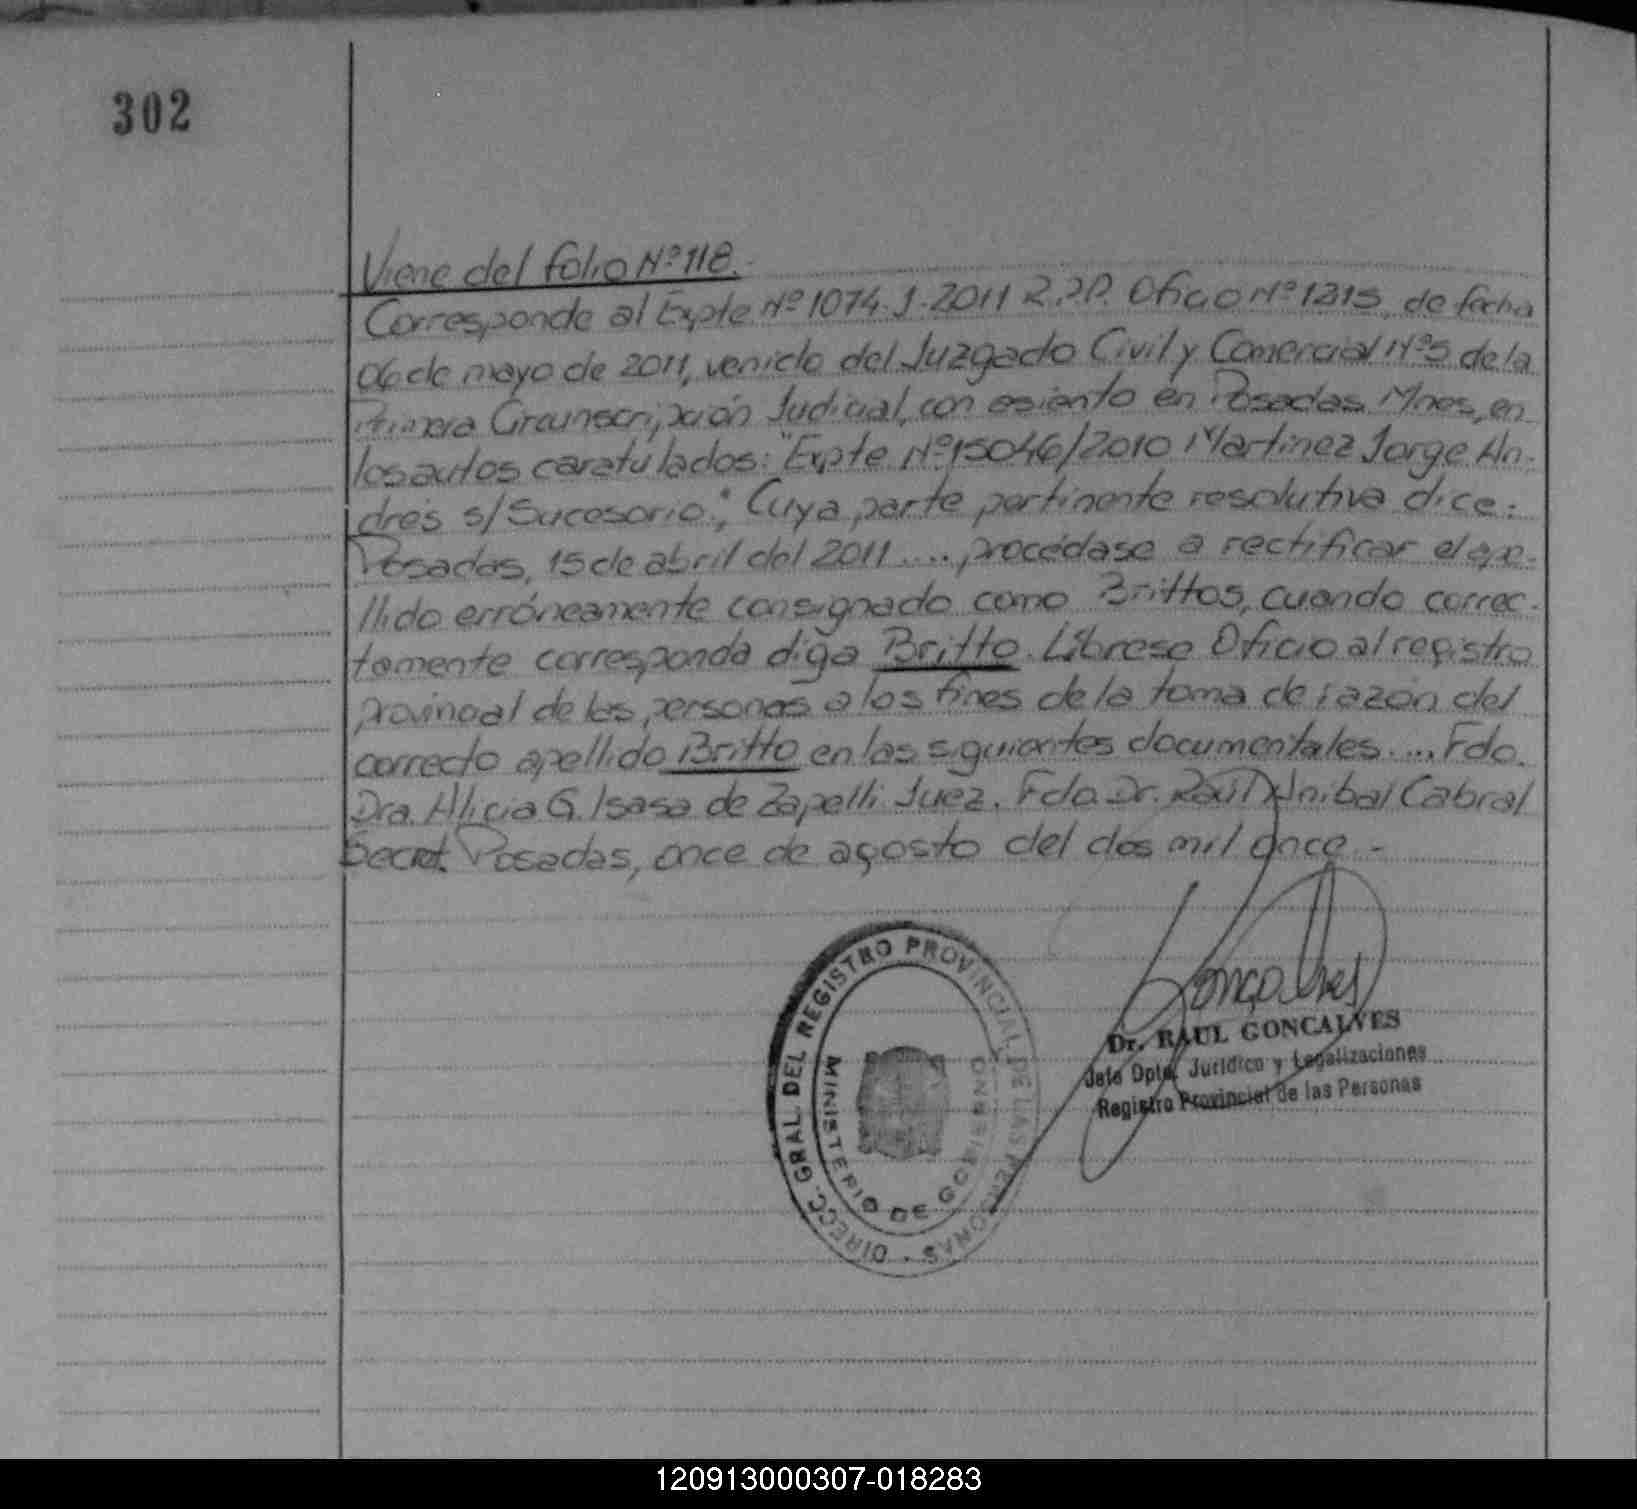 302
Viene del folio Nº 118.
Corresponde al Expte Nº 1074-J-2011 R.P.P. Oficio Nº 1315, de fecha
06 de mayo de 2011, venido del Juzgado Civil y Comercial Nº 5 de la
Primera Circunscripción Judicial, con asiento en Posadas Mnes, en
los autos caratulados: "Expte. Nº 15046/2010 Martinez Jorge An-
drés s/ Sucesorio", Cuya parte pertinente resolutiva dice:
Posadas, 15 de abril del 2011 .... procédase a rectificar el ape-
llido erróneamente consignado como Brittos, cuando correc-
tamente corresponda diga Britto. Líbrese Oficio al registro
provincial de las personas a los fines de la toma de razón del
correcto apellido Britto en las siguientes documentales .... Fdo.
Dra. Alicia G. Isasa de Zapelli Juez. Fdo. Dr. Raúl Anibal Cabral
Secret. Posadas, once de agosto del dos mil once.-
DIRECC. GRAL. DEL REGISTRO PROVINCIAL DE LAS PERSONAS
MINISTERIO DE GOBIERNO
Goncalves
Dr. RAUL GONCALVES
Jefe Dpto. Jurídico y Legalizaciones
Registro Provincial de las Personas
120913000307-018283